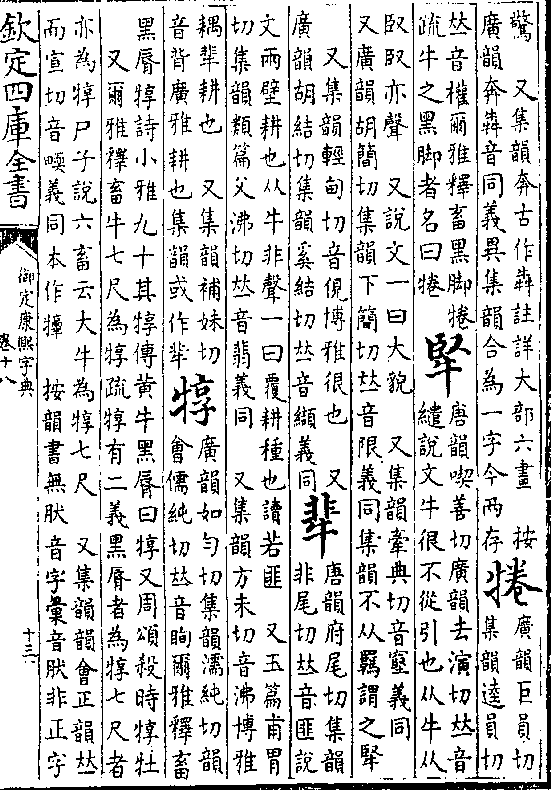 驚 又集韻奔古作犇註詳大部六畫 按
廣韻奔犇音同義異集韻合為一字今兩存
犈
廣韻巨員切
集韻逵員切
𠀤音權爾雅釋畜黑脚犈
疏牛之黑脚者名曰犈
㹂
唐韻喫善切廣韻去演切𠀤音
繾說文牛很不從引也从牛从
臤臤亦聲 又說文一曰大貌 又集韻牽典切音蜸義同
又廣韻胡簡切集韻下簡切𠀤音限義同集韻不从羈謂之㹂
又集韻輕甸切音俔博雅很也 又
廣韻胡結切集韻奚結切𠀤音纈義同
唐韻府尾切集韻
非尾切𠀤音匪說
文兩壁耕也从牛非聲一曰覆耕種也讀若匪 又玉篇甫胃
切集韻類篇父沸切𠀤音翡義同 又集韻方未切音沸博雅
耦耕也 又集韻補妹切
音背廣雅耕也集韻或作
犉
廣韻如勻切集韻濡純切韻
會儒純切𠀤音瞤爾雅釋畜
黑脣犉詩小雅九十其犉傳黃牛黑脣曰犉又周頌殺時犉牡
又爾雅釋畜牛七尺為犉疏犉有二義黑脣者為犉七尺者
亦為犉尸子說六畜云大牛為犉七尺 又集韻韻會正韻𠀤
而宣切音義同本作 按韻書無音字彙音非正字
欽定四庫全書
御定康熙字典
卷十八
十三